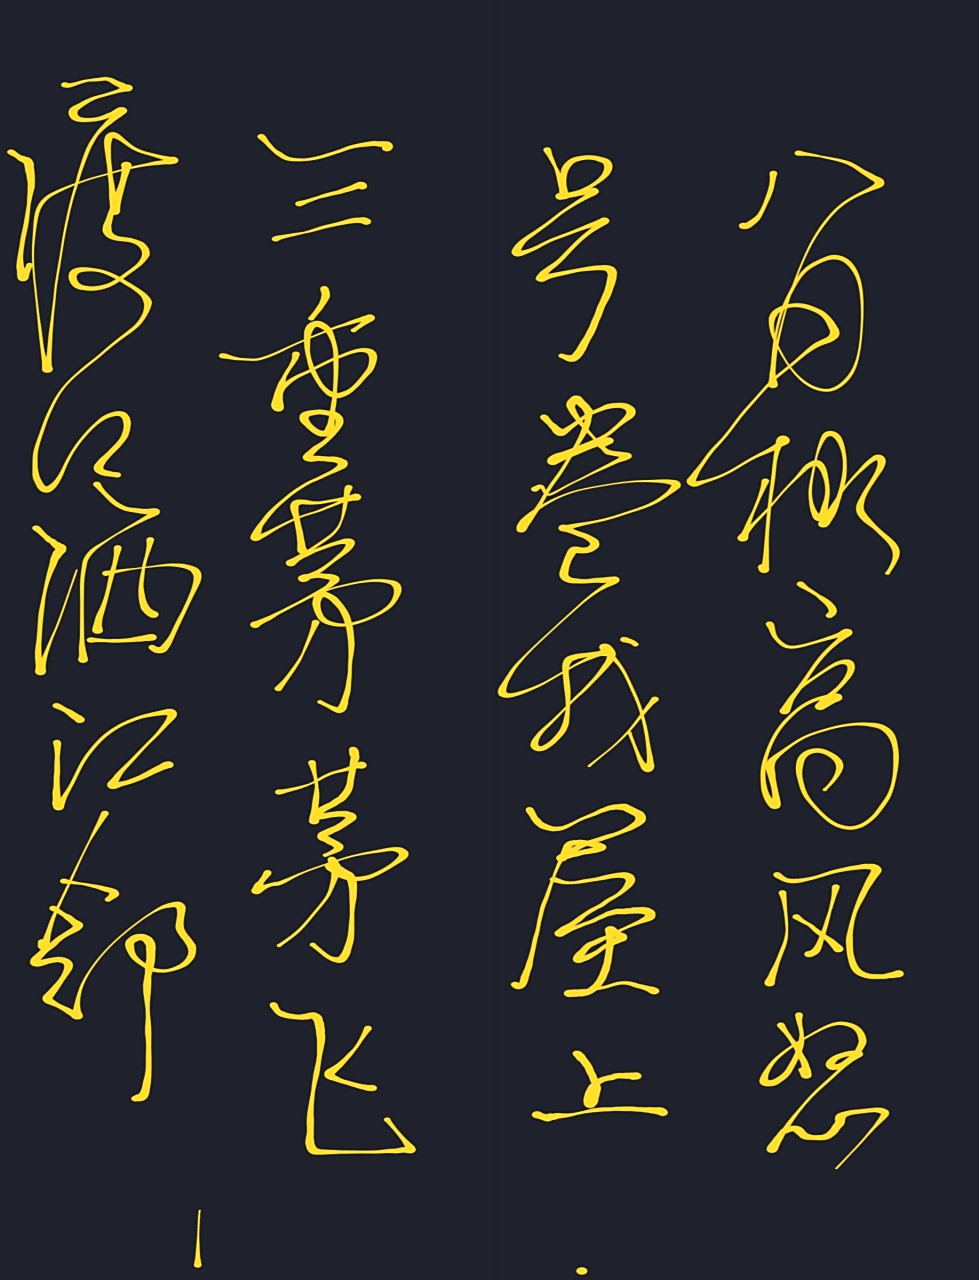 八月秋高风怒
号卷我屋上
三重茅茅飞
渡江洒江郊